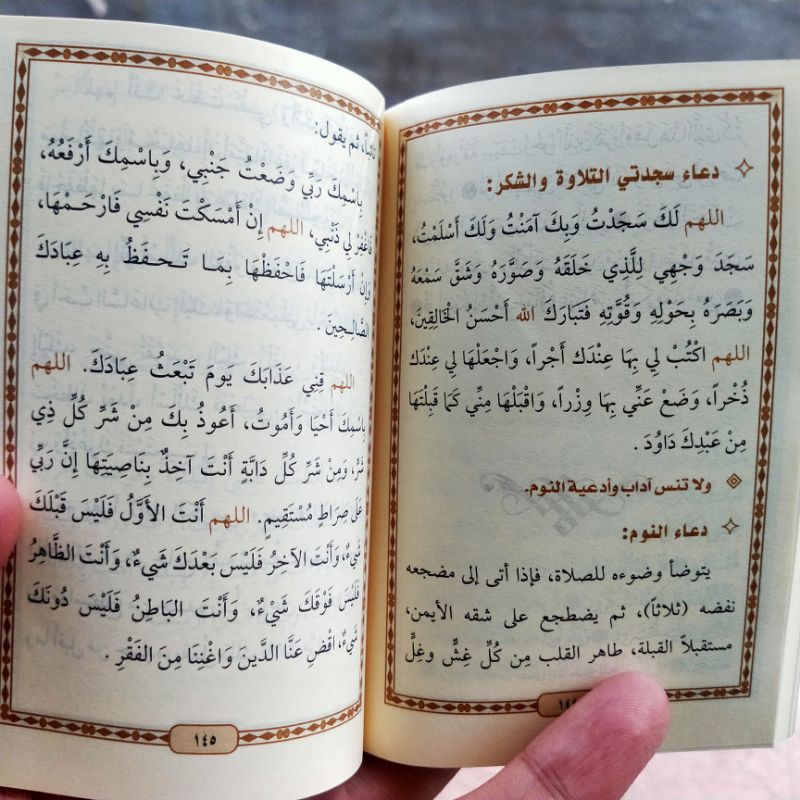 دعاء سجدتي التلاوة والشكر:
اللهم لَكَ سَجَدْتُ وَبِكَ آمَنْتُ وَلَكَ أَسْلَمْتُ،
سَجَدَ وَجْهِي لِلَّذِي خَلَقَهُ وَصَوَّرَهُ وَشَقَّ سَمْعَهُ
وَبَصَرَهُ بِحَوْلِهِ وَقُوَّتِهِ فَتَبَارَكَ الله أَحْسَنُ الْخَالِقِينَ،
اللهم اكْتُبْ لِي بِهَا عِنْدَكَ أَجْراً، وَاجْعَلْهَا لِي عِنْدَكَ
ذُخْراً، وَضَعْ عَنِّي بِهَا وِزْراً، وَاقْبَلْهَا مِنِّي كَمَا قَبِلْتَهَا
مِنْ عَبْدِكَ دَاوُدَ .
ولا تنس آداب وأدعية النوم.
دعاء النوم:
يتوضأ وضوءه للصلاة، فإذا أتى إلى مضجعه
نفضه (ثلاثاً)، ثم يضطجع على شقه الأيمن،
مستقبلاً القبلة، طاهر القلب مِن كُلِّ غِشٍّ وغِلٍّ
ثم يقول:
بِاسْمِكَ رَبِّي وَضَعْتُ جَنْبِي، وَبِاسْمِكَ أَرْفَعُهُ،
فَاغْفِرْ لِي ذَنْبِي، اللهم إِنْ أَمْسَكْتَ نَفْسِي فَارْحَمْهَا،
وَإِنْ أَرْسَلْتَهَا فَاحْفَظْهَا بِمَا تَحْفَظُ بِهِ عِبَادَكَ
الصَّالِحِينَ .
اللهم قِنِي عَذَابَكَ يَوْمَ تَبْعَثُ عِبَادَكَ. اللهم
بِاسْمِكَ أَحْيَا وَأَمُوتُ، أَعُوذُ بِكَ مِنْ شَرِّ كُلِّ ذِي
شَرٍّ، وَمِنْ شَرِّ كُلِّ دَابَّةٍ أَنْتَ آخِذٌ بِنَاصِيَتِهَا إِنَّ رَبِّي
عَلَى صِرَاطٍ مُسْتَقِيمٍ. اللهم أَنْتَ الأَوَّلُ فَلَيْسَ قَبْلَكَ
شَيْءٌ، وَأَنْتَ الآخِرُ فَلَيْسَ بَعْدَكَ شَيْءٌ، وَأَنْتَ الظَّاهِرُ
فَلَيْسَ فَوْقَكَ شَيْءٌ، وَأَنْتَ البَاطِنُ فَلَيْسَ دُونَكَ
شَيْءٌ، اقْضِ عَنَّا الدَّينَ وَاغْنِنَا مِنَ الفَقْرِ .
١٤٥